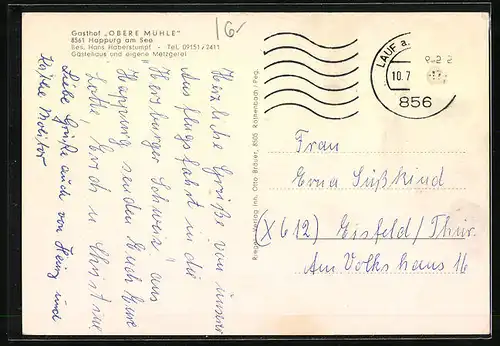 Gasthof „OBERE MÜHLE"
8561 Happurg am See
Bes. Hans Haberstumpf - Tel. 09151/2411
Gästehaus und eigene Metzgerei
16-
LAUF a.
10.7
856
Herzliche Grüße von unserer
Ausflugsfahrt in die
"Hersbrucker Schweiz" aus
Happurg senden Euch Eure
Lotte Erich u Christine
Liebe Grüße auch von Heinz und
Käthe Molitor
Verlag Inh. Otto Bräuer, 8505 Röthenbach / Peg.
Frau
Erna Süßkind
(X 612) Eisfeld/Thür.
Am Volkshaus 16